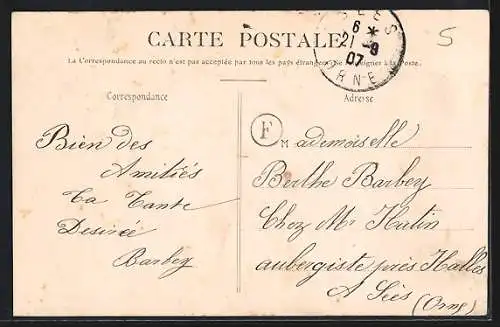 CARTE POSTALE
La Correspondance au recto n'est pas acceptée par tous les pays étrangers. Se renseigner à la Poste.
6
21-9
07
ORNE
5
Correspondance
Adresse
Bien des
Amitiés
Ta Tante
Desirée
Barbey
F
Mademoiselle
Berthe Barbey
Chez Mr Hatin
aubergiste près Halles
A Sées
(Orne)